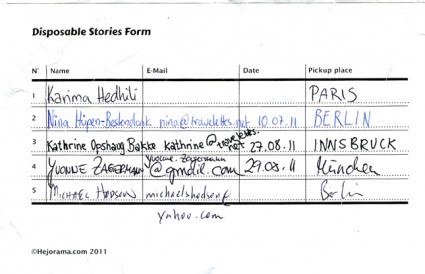 Disposable Stories Form
N° Name E-Mail Date Pickup place
1 Karima Hedhili PARIS
2 Nina Hüpen-Bestendonk nina@traveletts.net 10.07.11 BERLIN
3 Kathrine Opshaug Bakke kathrine@traveletts.net 27.08.11 INNSBRUCK
4 YVONNE ZAGERMANN yvonne.zagermann@gmail.com 29.08.11 München
5 MICHAEL HODSON michaelshodson@ Berlin
yahoo.com
©Hejorama.com 2011